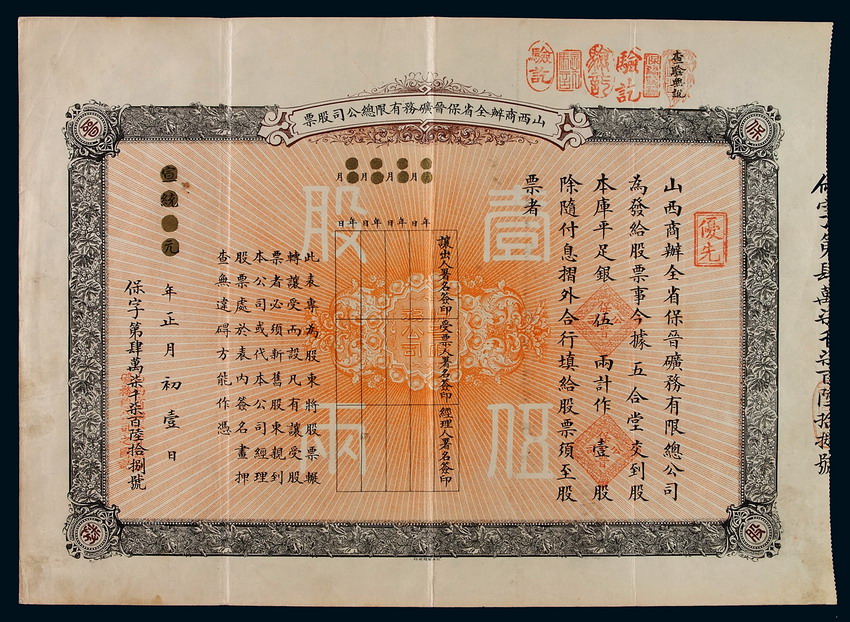 山西商辦全省保晉礦務有限總公司股票
驗訖
驗訖
驗訖
查驗無訛
保
晉
股
發
優先
山西商辦全省保晉礦務有限總公司
為發給股票事今據五合堂交到股
本庫平足銀伍兩計作壹股
除隨付息摺外合行填給股票須至股
票者
壹股
伍兩
月 月 月 月
年 日 年 日 年 日 年 日
讓出人署名簽印
受票人署名簽印
經理人署名簽印
此表專為股東將股票輾
轉讓受而設凡有讓受股
票者必須新舊股東親到
本公司或代本公司經理
股票處於表內簽名畫押
查無違碍方能作憑
宣統元年正月初壹日
保字第肆萬柒千柒百陸拾捌號
保字第肆萬柒千柒百陸拾捌號